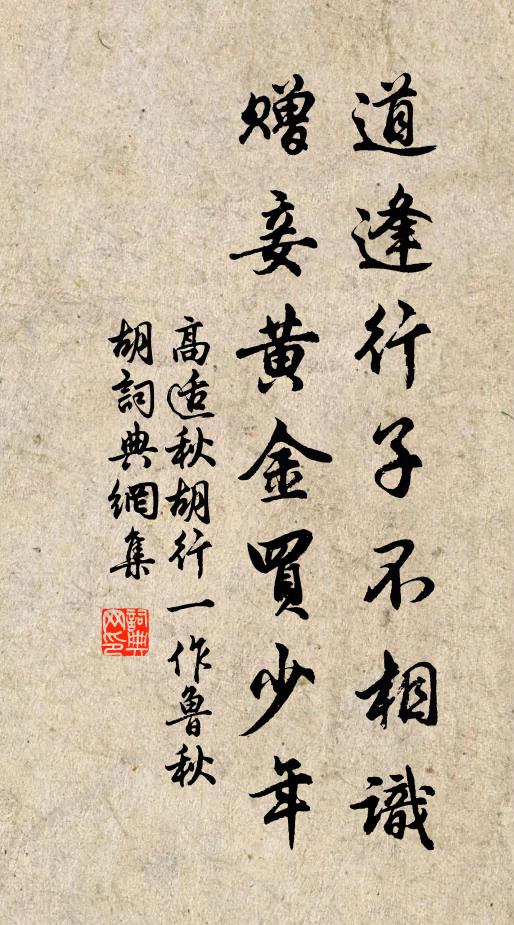 道逢行子不相識
贈妾黃金買少年
高适秋胡行一作魯秋
胡詞典網集
詞典网印